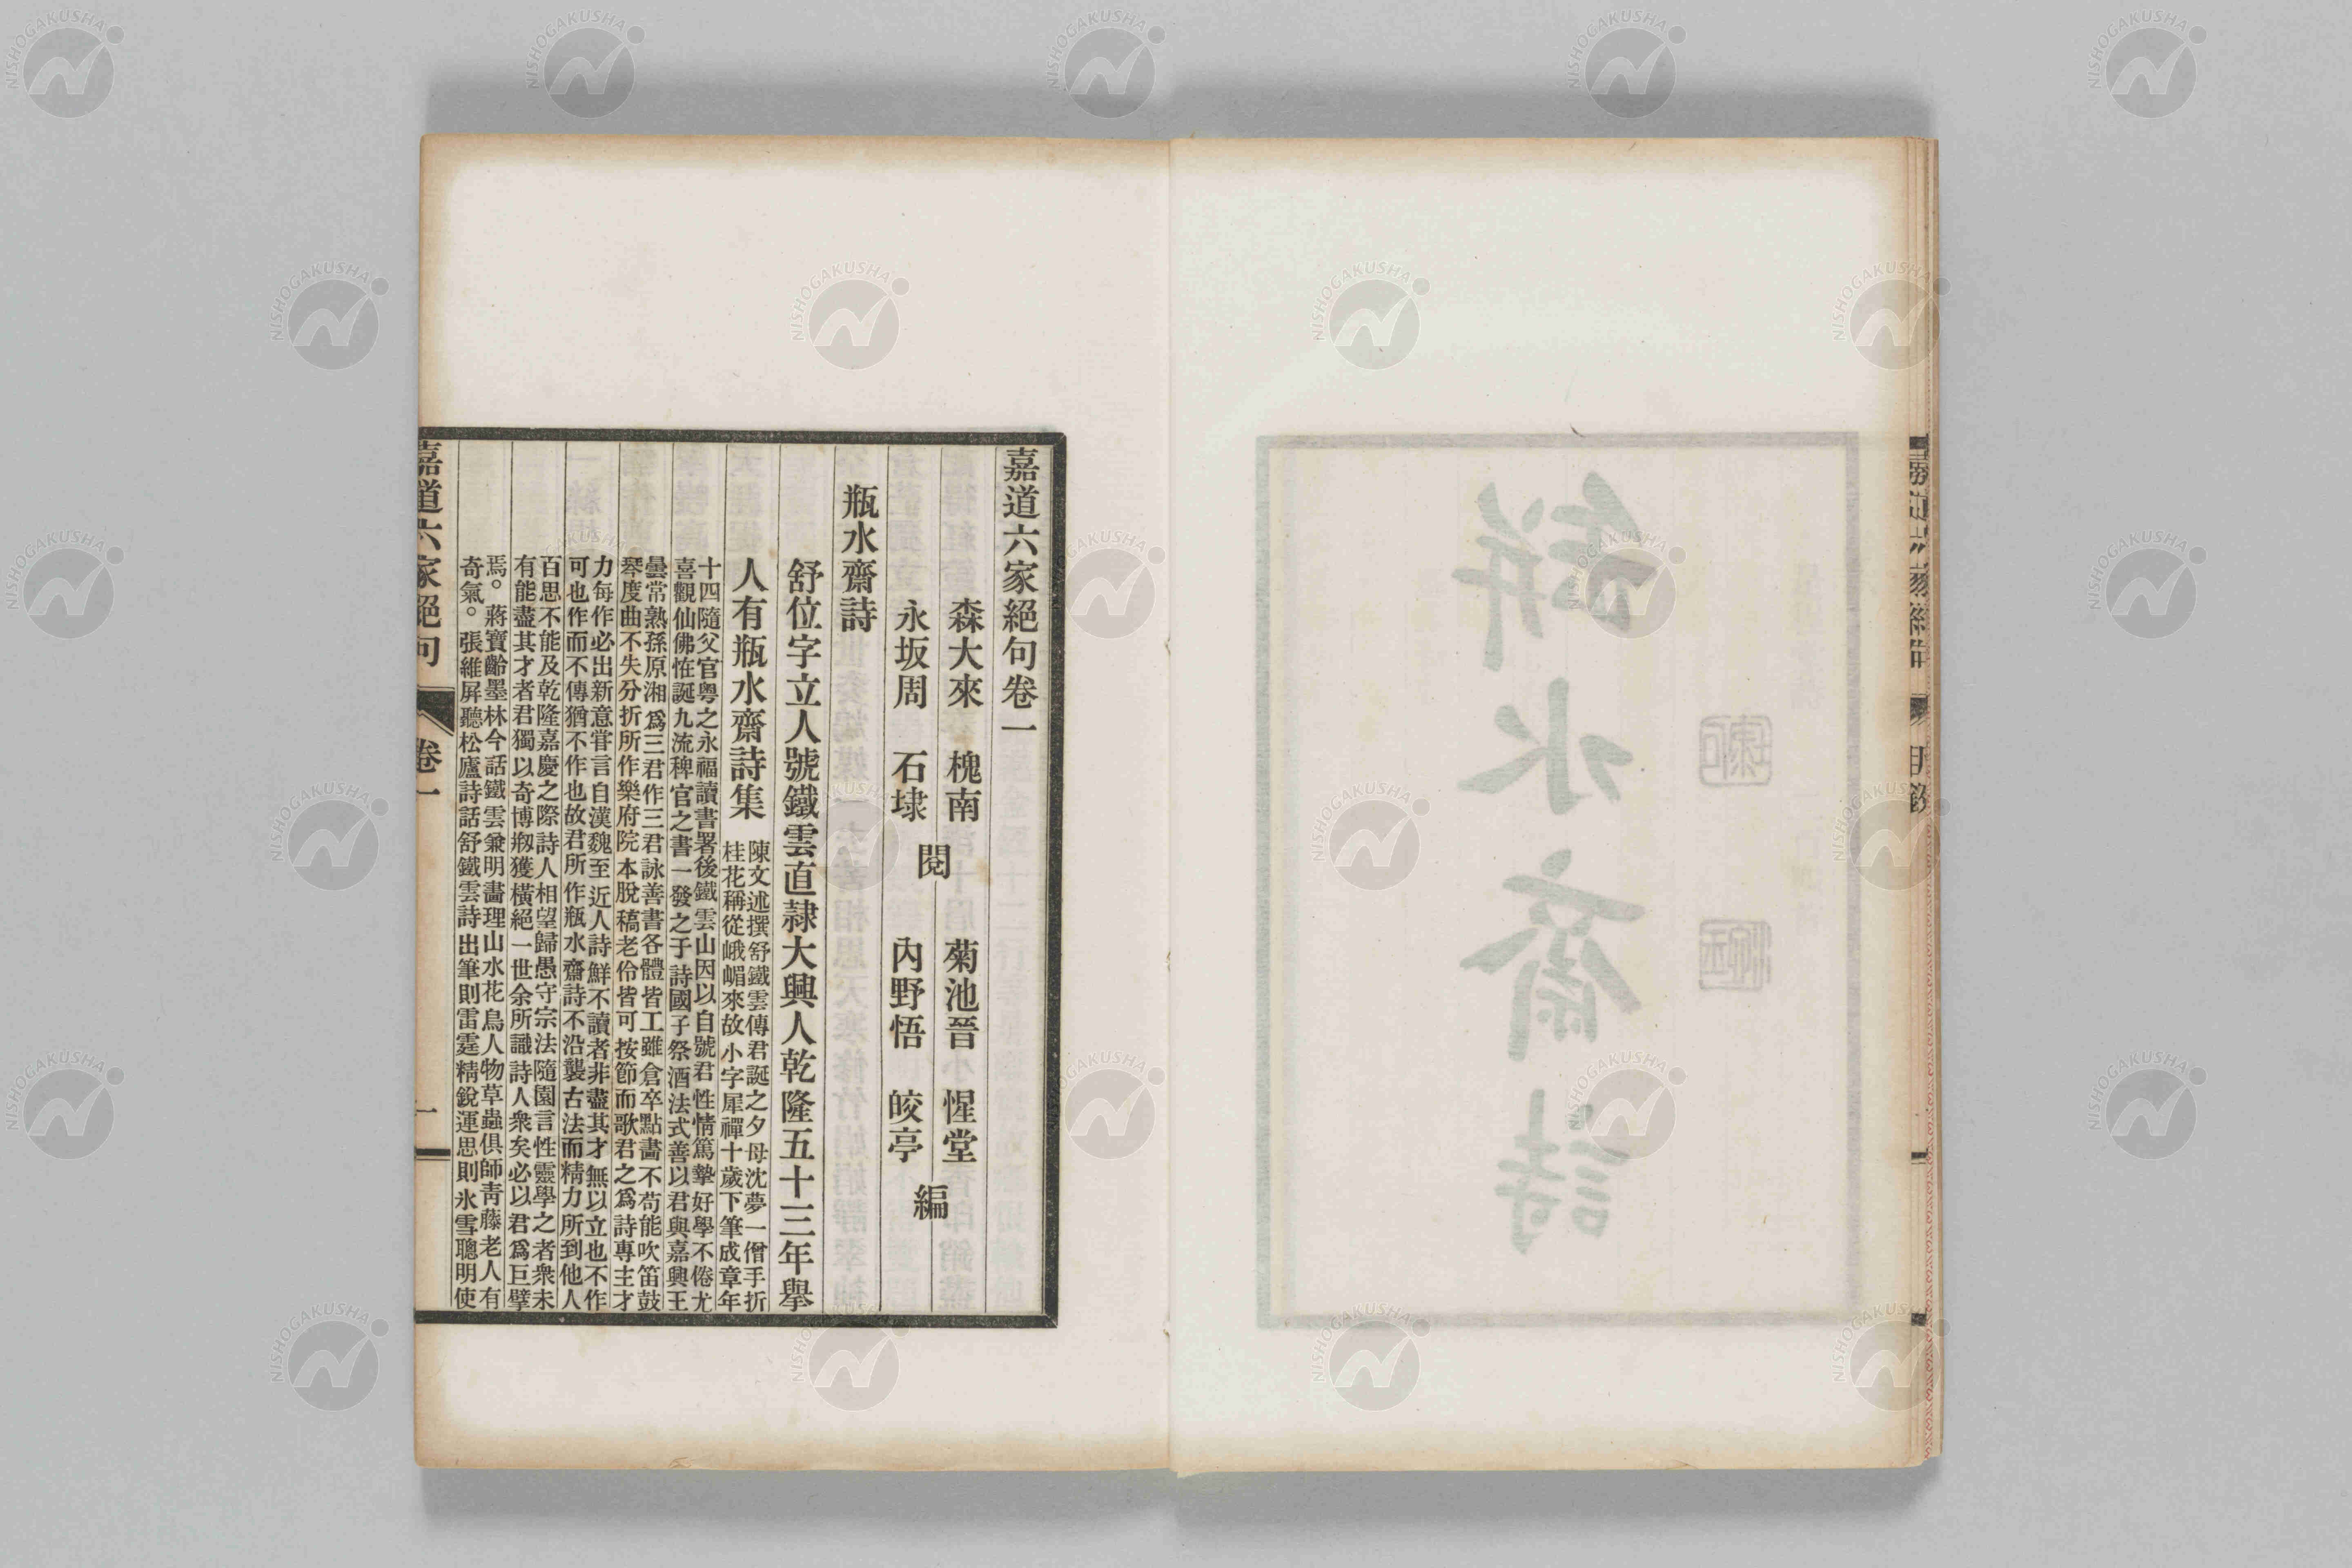 嘉道六家絕句卷一
森大來 槐南
永坂周 石埭
閱
菊池晉 惺堂
內野悟 皎亭
編
瓶水齋詩
舒位字立人號鐵雲直隷大興人乾隆五十三年舉
人有瓶水齋詩集
陳文述撰舒鐵雲傳君誕之夕母沈夢一僧手折
桂花稱從峨嵋來故小字犀禪十歲下筆成章年
十四隨父官粤之永福讀書署後鐵雲山因以自號君性情篤摯好學不倦尤
喜觀仙佛恠誕九流稗官之書一發之于詩國子祭酒法式善以君與嘉興王
曇常熟孫原湘爲三君作三君詠善書各體皆工雖倉卒點畫不苟能吹笛鼓
琴度曲不失分折所作樂府院本脫稿老伶皆可按節而歌君之爲詩專主才
力每作必出新意甞言自漢魏至近人詩鮮不讀者非盡其才無以立也不作
可也作而不傳猶不作也故君所作瓶水齋詩不沿襲古法而精力所到他人
百思不能及乾隆嘉慶之際詩人相望歸愚守宗法隨園言性靈學之者衆未
有能盡其才者君獨以奇博剏獲橫絕一世余所識詩人衆矣必以君爲巨擘
焉。蔣寶齡墨林今話鐵雲兼明畫理山水花鳥人物草蟲俱師靑藤老人有
奇氣。張維屛聽松廬詩話舒鐵雲詩出筆則雷霆精銳運思則氷雪聰明使
嘉道六家絕句 卷一 一
缾水齋詩